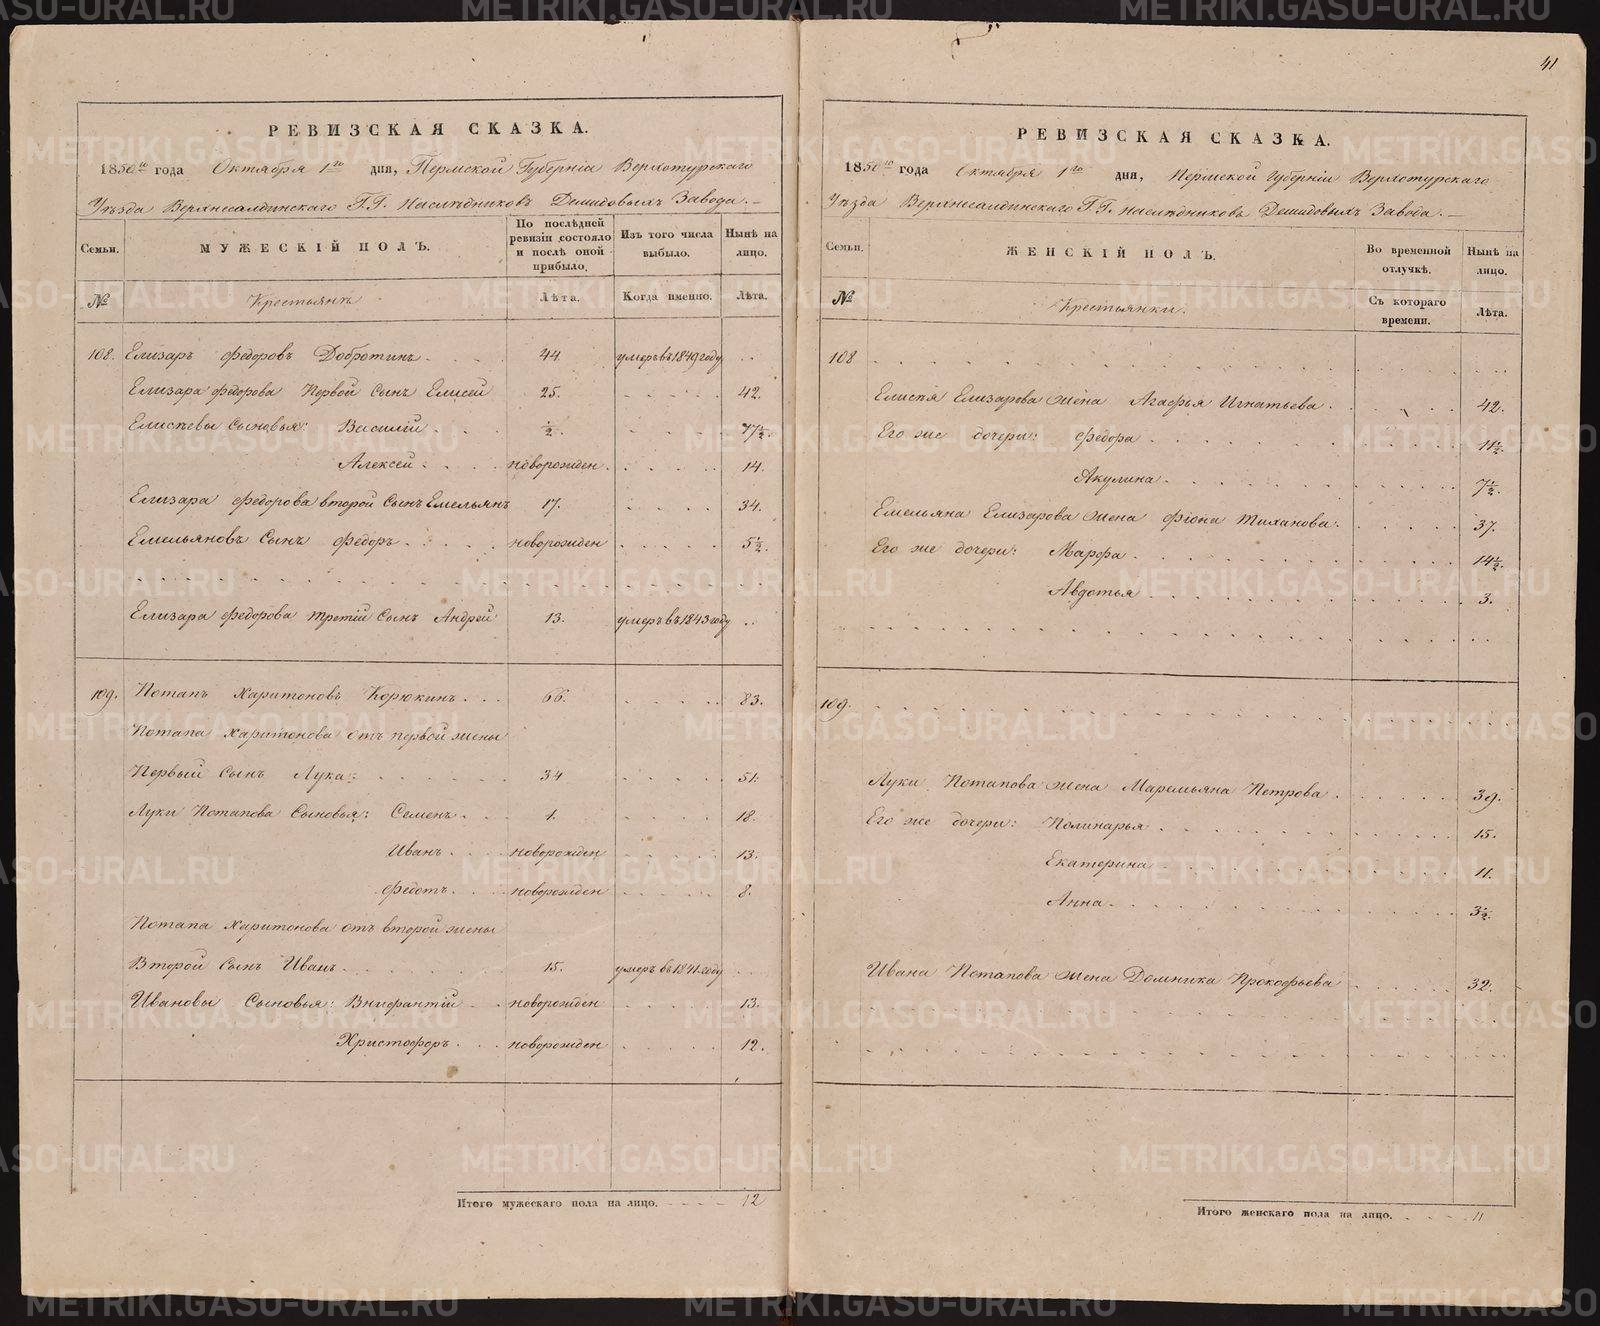 41
РЕВИЗСКАЯ СКАЗКА.
1850го года Октября 1го дня, Пермской Губернiи Верхотурскаго
Уѣзда Верхнесалдинскаго Г.Г. Наслѣдниковъ Демидовыхъ Завода.
Семьи.
МУЖЕСКIЙ ПОЛЪ.
По послѣдней ревизiи состояло и послѣ оной прибыло.
Изъ того числа выбыло.
Нынѣ на лицо.
№ Крестьянъ Лѣта. Когда именно. Лѣта.
108. Елизаръ Федоровъ Добротинъ. 44. умеръ въ 1849 году
Елизара Федорова Первой Сынъ Елисей 25. 42.
Елисѣевы Сыновья: Василiй ½. 17½.
Алексей новорожден. 14.
Елизара Федорова второй Сынъ Емельянъ 17. 34.
Емельяновъ Сынъ Федоръ новорожден 5½.
Елизара Федорова третiй Сынъ Андрей 13. умеръ въ 1843 году
109. Потапъ Харитоновъ Корюкинъ. 66. 83.
Потапа Харитонова отъ первой жены
Первый Сынъ Лука: 34 51.
Луки Потапова Сыновья: Семенъ. 1. 18.
Иванъ. новорожден 13.
Федотъ. новорожден 8.
Потапа Харитонова отъ второй жены
Второй Сынъ Иванъ. 15. умеръ въ 1841 году
Ивановы Сыновья: Внифантiй новорожден 13.
Христофоръ. новорожден 12.
Итого мужескаго пола на лицо. 12
РЕВИЗСКАЯ СКАЗКА.
1850го года Октября 1го дня, Пермской Губернiи Верхотурскаго
Уѣзда Верхнесалдинскаго Г.Г. Наслѣдниковъ Демидовыхъ Завода.
Семьи.
ЖЕНСКIЙ ПОЛЪ.
Во временной отлучкѣ.
Нынѣ на лицо.
№ Крестьянки. Съ котораго времени. Лѣта.
108
Елисѣя Елизарова Жена Агафья Игнатьева. 42.
Его же дочери: Федора 11½.
Акулина 7½.
Емельяна Елизарова Жена Фiона Тиханова. 37.
Его же дочери: Марфа 14½.
Авдотья 3.
109.
Луки Потапова Жена Маремьяна Петрова. 39.
Его же дочери: Полинарья 15.
Екатерина 11.
Анна. 3½.
Ивана Потапова Жена Домника Прокофьева 32.
Итого женскаго пола на лицо. 11
METRIKI.GASO-URAL.RU